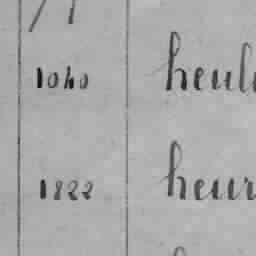 1040 heul
1822 heur